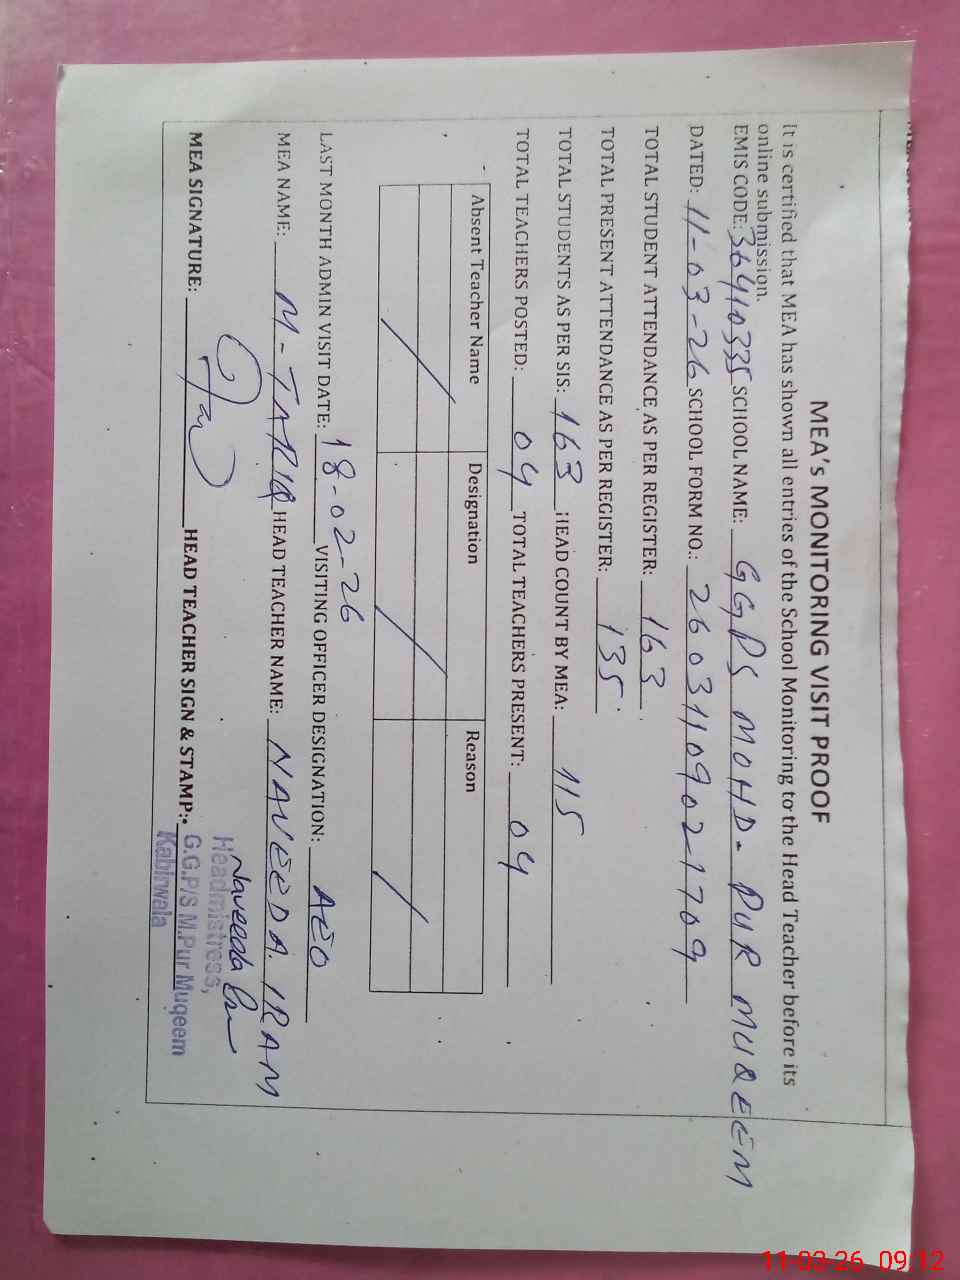 MEA's MONITORING VISIT PROOF
It is certified that MEA has shown all entries of the School Monitoring to the Head Teacher before its
online submission.
EMIS CODE: 36410335 SCHOOL NAME: GGPS MOHD- PUR MUQEEM
DATED: 11-03-26 SCHOOL FORM NO.: 26031109021709
TOTAL STUDENT ATTENDANCE AS PER REGISTER: 163
TOTAL PRESENT ATTENDANCE AS PER REGISTER: 135
TOTAL STUDENTS AS PER SIS: 163 HEAD COUNT BY MEA: 115
TOTAL TEACHERS POSTED: 04 TOTAL TEACHERS PRESENT: 04
Absent Teacher Name Designation Reason
/ / /
LAST MONTH ADMIN VISIT DATE: 18-02-26 VISITING OFFICER DESIGNATION: AEO
MEA NAME: M-TARIQ HEAD TEACHER NAME: NAVEEDA IRAM
MEA SIGNATURE: HEAD TEACHER SIGN & STAMP:
Naveeda
Headmistress,
G.G.P/S M.Pur Muqeem
Kabirwala
11-03-26 09:12